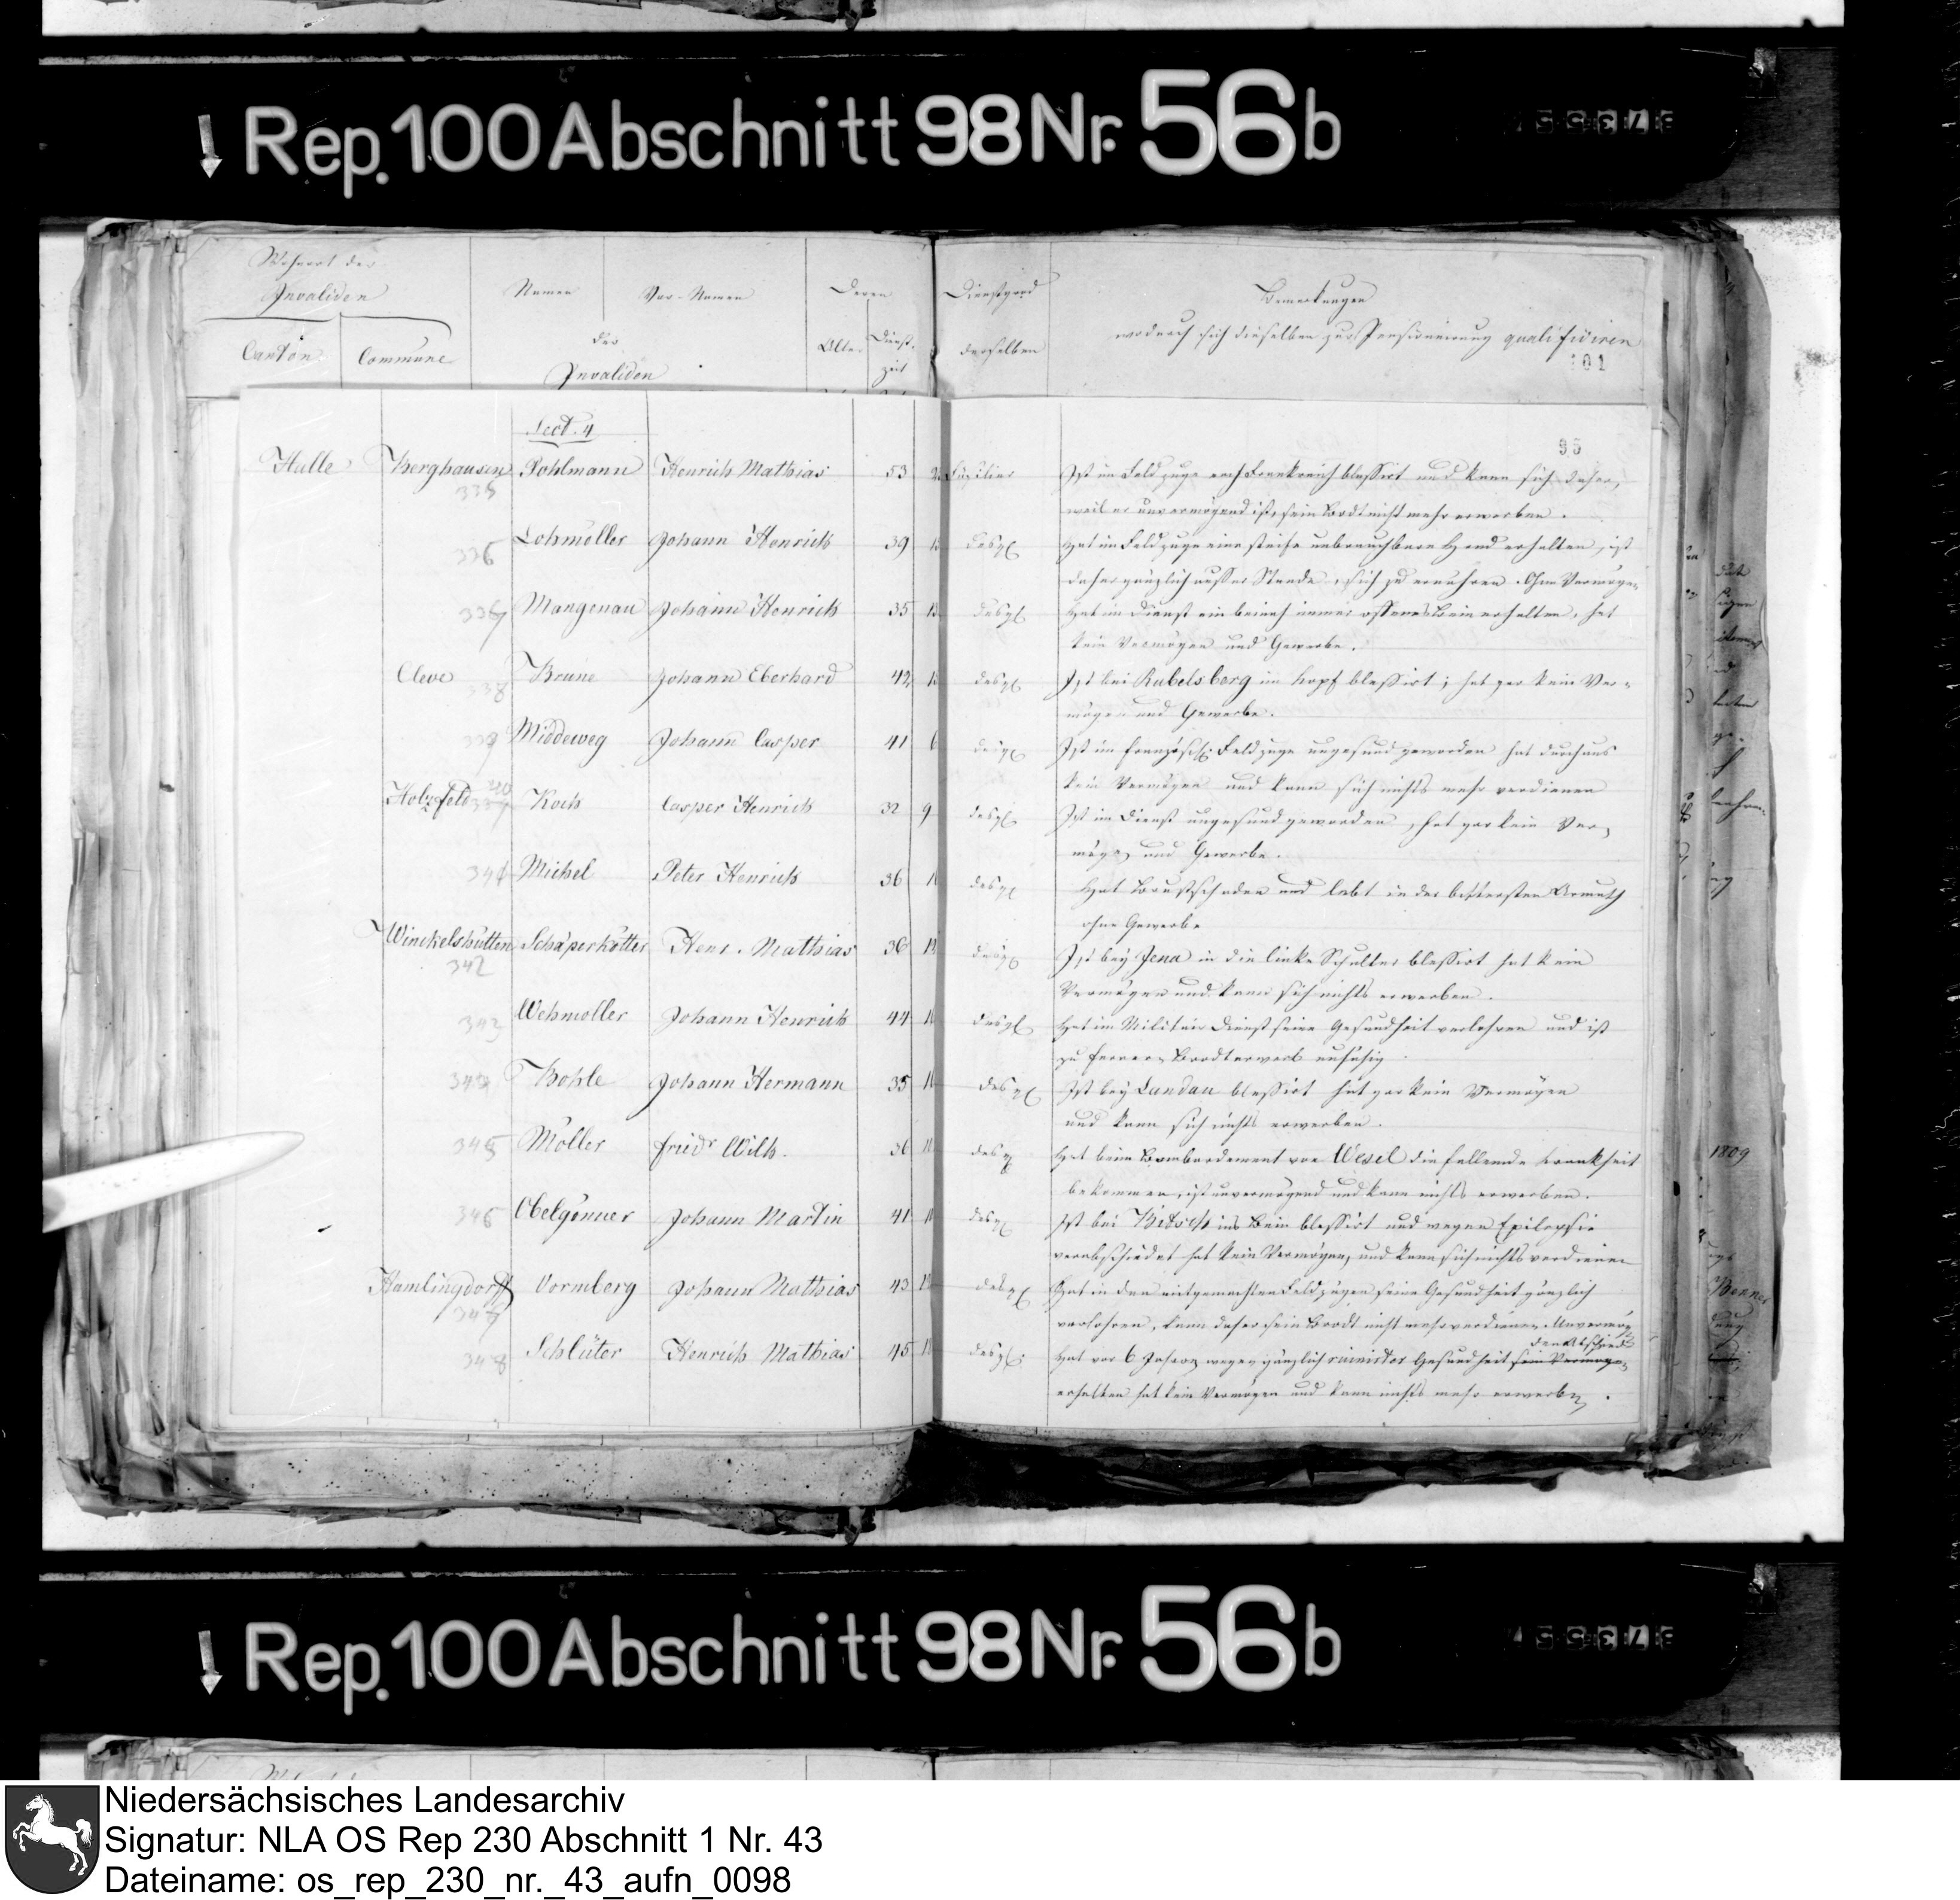 Rep. 100 Abschnitt 98 Nr. 56b
Wohnort der Invaliden
Namen Vor-Namen Deren Dienstgrad Bemerkungen
Canton Commune der Invaliden Alter Dienst-zeit derselben wodurch sich dieselben zur Pensionirung qualificiren
101
Sect. 4
95
Halle Berghausen Pohlmann Henrich Mathias 53 Füsilier Ist im Feldzuge nach Frankreich bleßirt und kann sich daher,
335 weil er unvermögend ist, sein Brodt nicht mehr erwerben.
336 Lohmöller Johann Henrich 39 desgl Hat im Feldzuge eine steife unbrauchbare Hand erhalten, ist
daher gänzlich außer Stande, sich zu ernähren. Ohne Vermögen
337 Mangenau Johann Henrich 35 desgl Hat im Dienst ein beinah immer offenes Bein erhalten, hat
kein Vermögen und Gewerbe.
Cleve 338 Brune Johann Eberhard 42 desgl Ist bei Rubelsberg im Kopf bleßirt; hat gar kein Ver-
mögen und Gewerbe.
339 Middeweg Johann Casper 41 6 desgl Ist im französch: Feldzuge ungesund geworden hat durchaus
kein Vermögen und kann sich nichts mehr verdienen
Holzfeld 340 Koch Casper Henrich 32 9 desgl Ist im Dienst ungesund geworden, hat gar kein Ver-
mögen und Gewerbe.
341 Michel Peter Henrich 36 desgl Hat Brustschaden und lebt in der bittersten Armuth
ohne Gewerbe
Winckelshütten Schäperkötter Henr. Mathias 36 desgl Ist bey Jena in die linke Schulter bleßirt hat kein
342 Vermögen und kann sich nichts erwerben.
343 Wehmöller Johann Henrich 44 desgl Hat im Militair Dienst seine Gesundheit verlohren und ist
zu ferner Brodterwerb unfähig.
344 Bohle Johann Hermann 35 desgl Ist bey Landau bleßirt hat gar kein Vermögen
und kann sich nichts erwerben.
345 Möller Friedr Wilh. 36 desgl Hat beim Bombardement von Wesel die fallende Krankheit
bekommen, ist unvermögend und kann nichts erwerben.
346 Obelgönner Johann Martin 41 desgl Ist bei Bitsch ins Bein bleßirt und wegen Epilepsie
verabschiedet hat kein Vermögen, und kann sich nichts verdienen
Hamlingdorff Vormberg Johann Mathias 43 desgl Hat in den mitgemachten Feldzügen seine Gesundheit gänzlich
347 verlohren, kann daher sein Brodt nicht mehr verdienen. Unvermög
den Abschied
348 Schlüter Henrich Mathias 45 desgl. Hat vor 6 Jahren wegen gänzlich ruinirter Gesundheit sein Vermögen
erhalten hat kein Vermögen und kann nichts mehr erwerben.
1809
Rep. 100 Abschnitt 98 Nr. 56b
Niedersächsisches Landesarchiv
Signatur: NLA OS Rep 230 Abschnitt 1 Nr. 43
Dateiname: os_rep_230_nr._43_aufn_0098